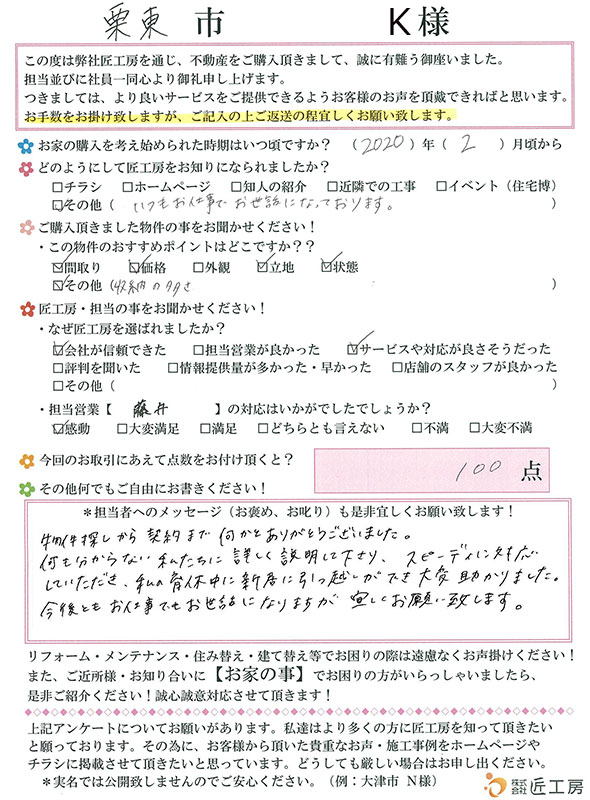 栗東 市 K様
この度は弊社匠工房を通じ、不動産をご購入頂きまして、誠に有難う御座いました。
担当並びに社員一同心より御礼申し上げます。
つきましては、より良いサービスをご提供できるようお客様のお声を頂戴できればと思います。
お手数をお掛け致しますが、ご記入の上ご返送の程宜しくお願い致します。
お家の購入を考え始められた時期はいつ頃ですか？ （2020）年（2）月頃から
どのようにして匠工房をお知りになられましたか？
□チラシ □ホームページ □知人の紹介 □近隣での工事 □イベント（住宅博）
☑その他（ いつもお仕事でお世話になっております。 ）
ご購入頂きました物件の事をお聞かせください！
・この物件のおすすめポイントはどこですか？？
☑間取り ☑価格 □外観 ☑立地 ☑状態
☑その他（収納の多さ ）
匠工房・担当の事をお聞かせください！
・なぜ匠工房を選ばれましたか？
☑会社が信頼できた □担当営業が良かった ☑サービスや対応が良さそうだった
□評判を聞いた □情報提供量が多かった・早かった □店舗のスタッフが良かった
□その他（ ）
・担当営業【 藤井 】の対応はいかがでしたでしょうか？
☑感動 □大変満足 □満足 □どちらとも言えない □不満 □大変不満
今回のお取引にあえて点数をお付け頂くと？ 100 点
その他何でもご自由にお書きください！
＊担当者へのメッセージ（お褒め、お叱り）も是非宜しくお願い致します！
物件探しから契約まで何かとありがとうございました。
何も分からない私たちに詳しく説明して下さり、スピーディに対応
していただき、私の育休中に新居に引っ越しができ大変助かりました。
今後ともお仕事でもお世話になりますが宜しくお願い致します。
リフォーム・メンテナンス・住み替え・建て替え等でお困りの際は遠慮なくお声掛けください！
また、ご近所様・お知り合いに【お家の事】でお困りの方がいらっしゃいましたら、
是非ご紹介ください！誠心誠意対応させて頂きます！
上記アンケートについてお願いがあります。私達はより多くの方に匠工房を知って頂きたい
と願っております。その為に、お客様から頂いた貴重なお声・施工事例をホームページや
チラシに掲載させて頂きたいと思っています。どうしても厳しい場合はお申し出ください。
＊実名では公開致しませんのでご安心ください。（例：大津市 N様）
株式会社 匠工房